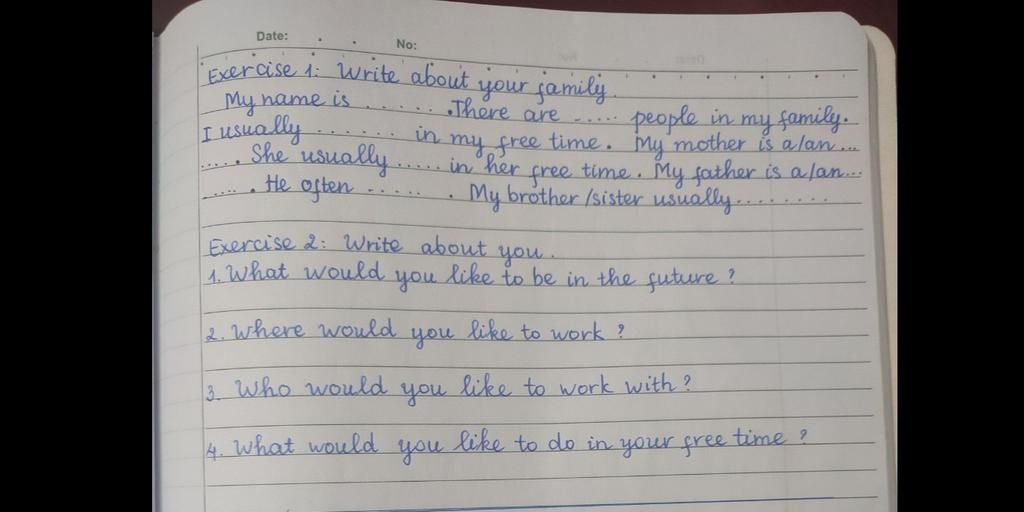 Date: . .
No:
Exercise 1: Write about your family.
My name is . . . . . . .There are ..... people in my family.
I usually ....... in my free time. My mother is a/an...
..... . She usually ..... in her free time. My father is a/an...
.... . He often ...... . My brother/sister usually.........
Exercise 2: Write about you.
1. What would you like to be in the future?
2. Where would you like to work?
3. Who would you like to work with?
4. What would you like to do in your free time?